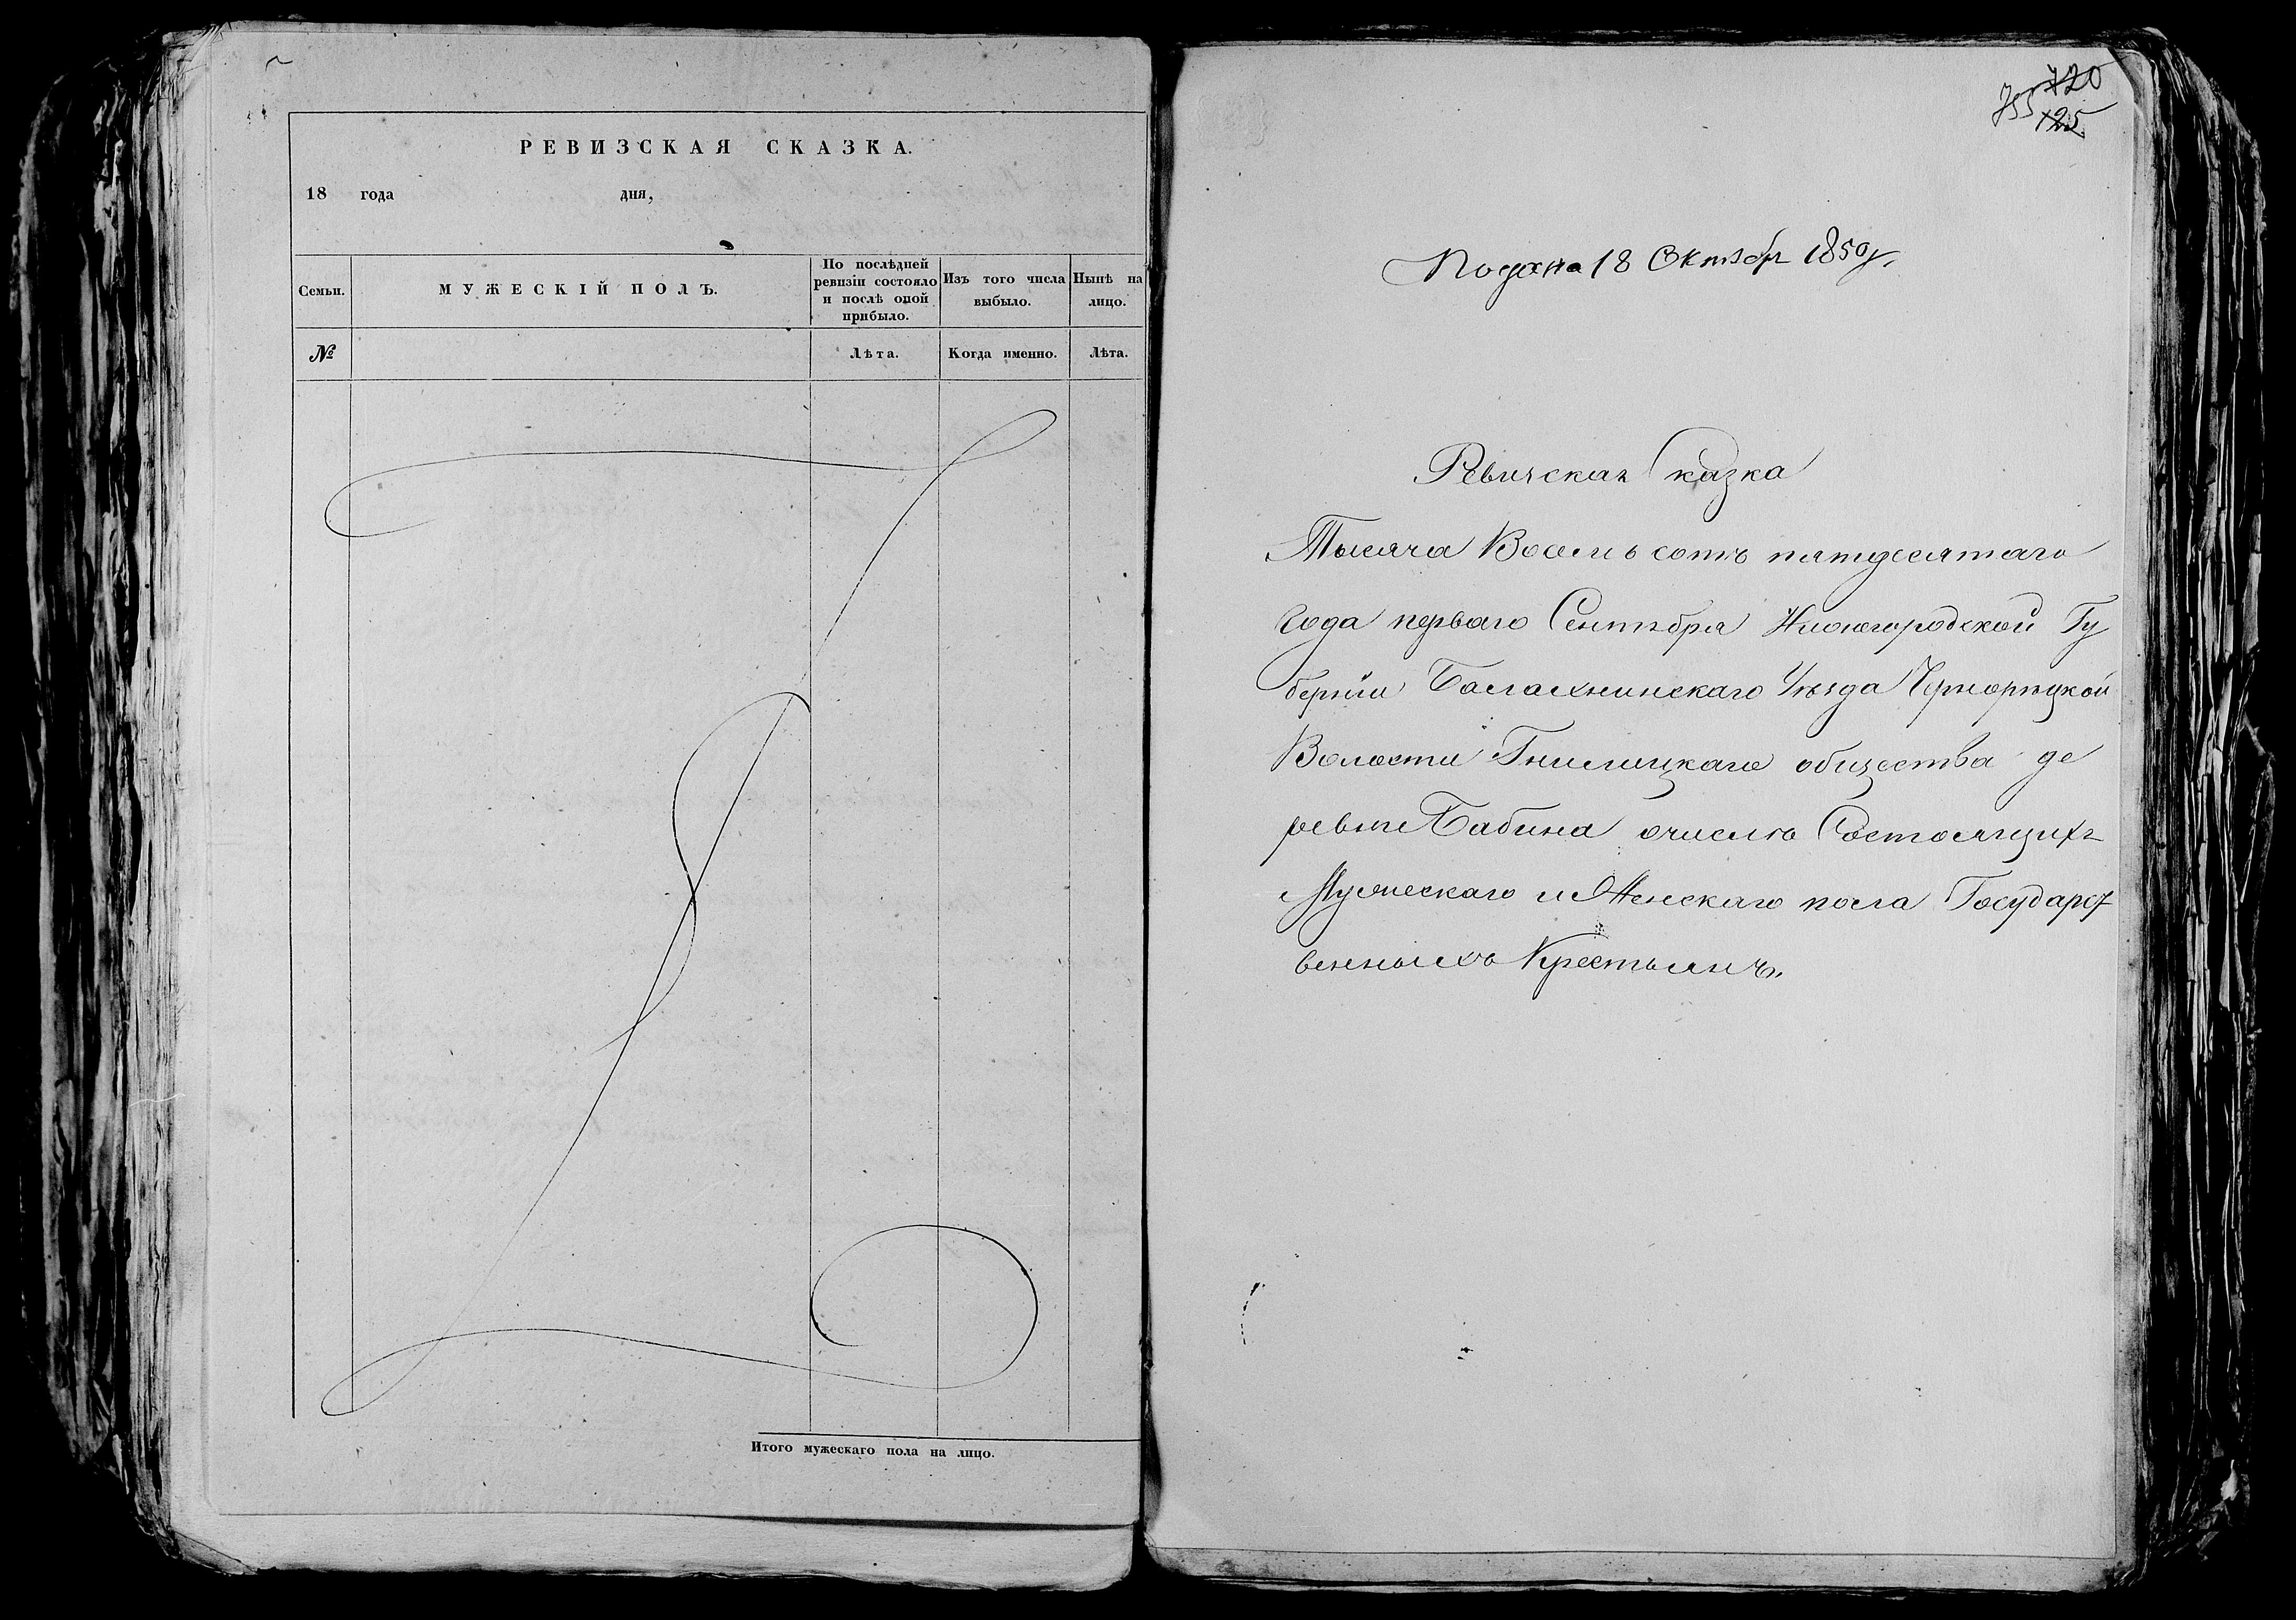 РЕВИЗСКАЯ СКАЗКА.
18 года дня,
Семьи.
МУЖЕСКІЙ ПОЛЪ.
По послѣдней ревизіи состояло и послѣ оной прибыло.
Изъ того числа выбыло.
Нынѣ на лицо.
№
Лѣта.
Когда именно.
Лѣта.
Итого мужескаго пола на лицо.
120
755
125
Подана 18 Октябр 1850 г.
Ревизская Сказка
Тысяча Восемь сотъ пятдесятаго
года перваго Сентября Нижегородской Гу
берніи Балахнинскаго Уѣзда Чернорѣцкой
Волости Гнилицкаго общества де
ревни Бабина очислѣ Состоящихъ
Мужескаго и Женскаго пола Государст
венныхъ Крестьянъ.